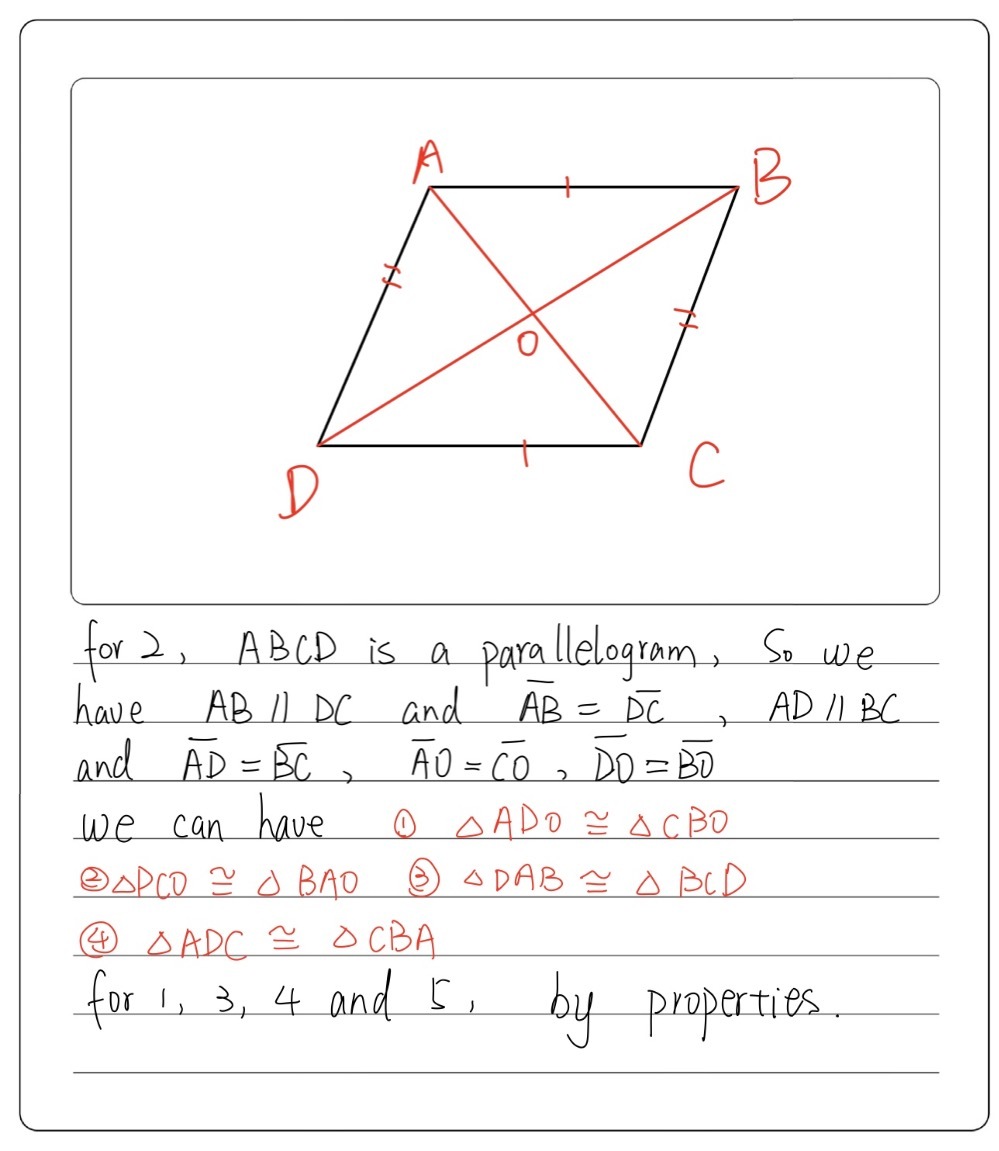 A
B
O
D
C
for 2, ABCD is a parallelogram, So we
have AB // DC and A̅B̅ = D̅C̅, AD // BC
and A̅D̅ = B̅C̅, A̅O̅ = C̅O̅, D̅O̅ = B̅O̅
we can have ① △ADO ≅ △CBO
②△DCO ≅ △BAO ③ △DAB ≅ △BCD
④ △ADC ≅ △CBA
for 1, 3, 4 and 5, by properties.